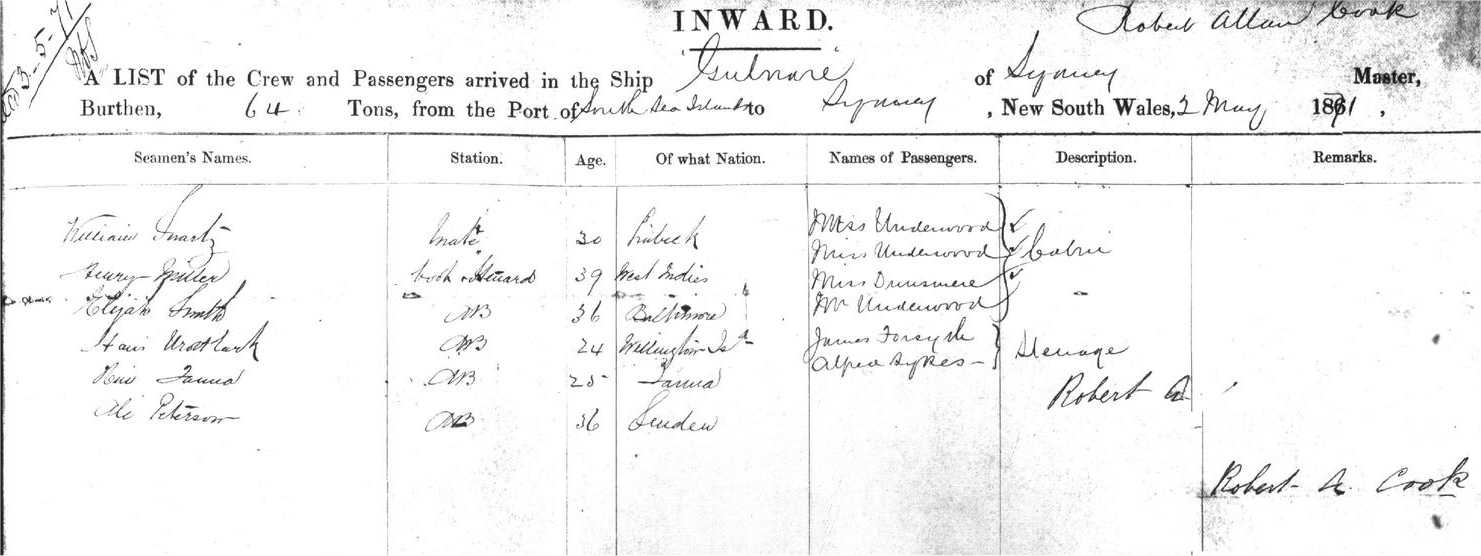 3-5-71
INWARD.
Robert Allan Cook
A LIST of the Crew and Passengers arrived in the Ship "Gulnare" of Sydney Master,
Burthen, 64 Tons, from the Port of South Sea Islands to Sydney, New South Wales, 2 May 1871,
Seamen's Names. Station. Age. Of what Nation. Names of Passengers. Description. Remarks.
Miss Underwood
William Swartz Mate 30 Lubeck
Miss Underwood Cabin
Henry Miller Cook & Steward 39 West Indies Miss Dunsmere
Elijah Smith AB 36 Baltimore Mr Underwood
Hans AB 24 Wellington Isd James Forsyth
Alfred Sykes Steerage
Tanna AB 25 Tanna
Robert A
Ole Peterson AB 36 Sweden
Robert A Cook